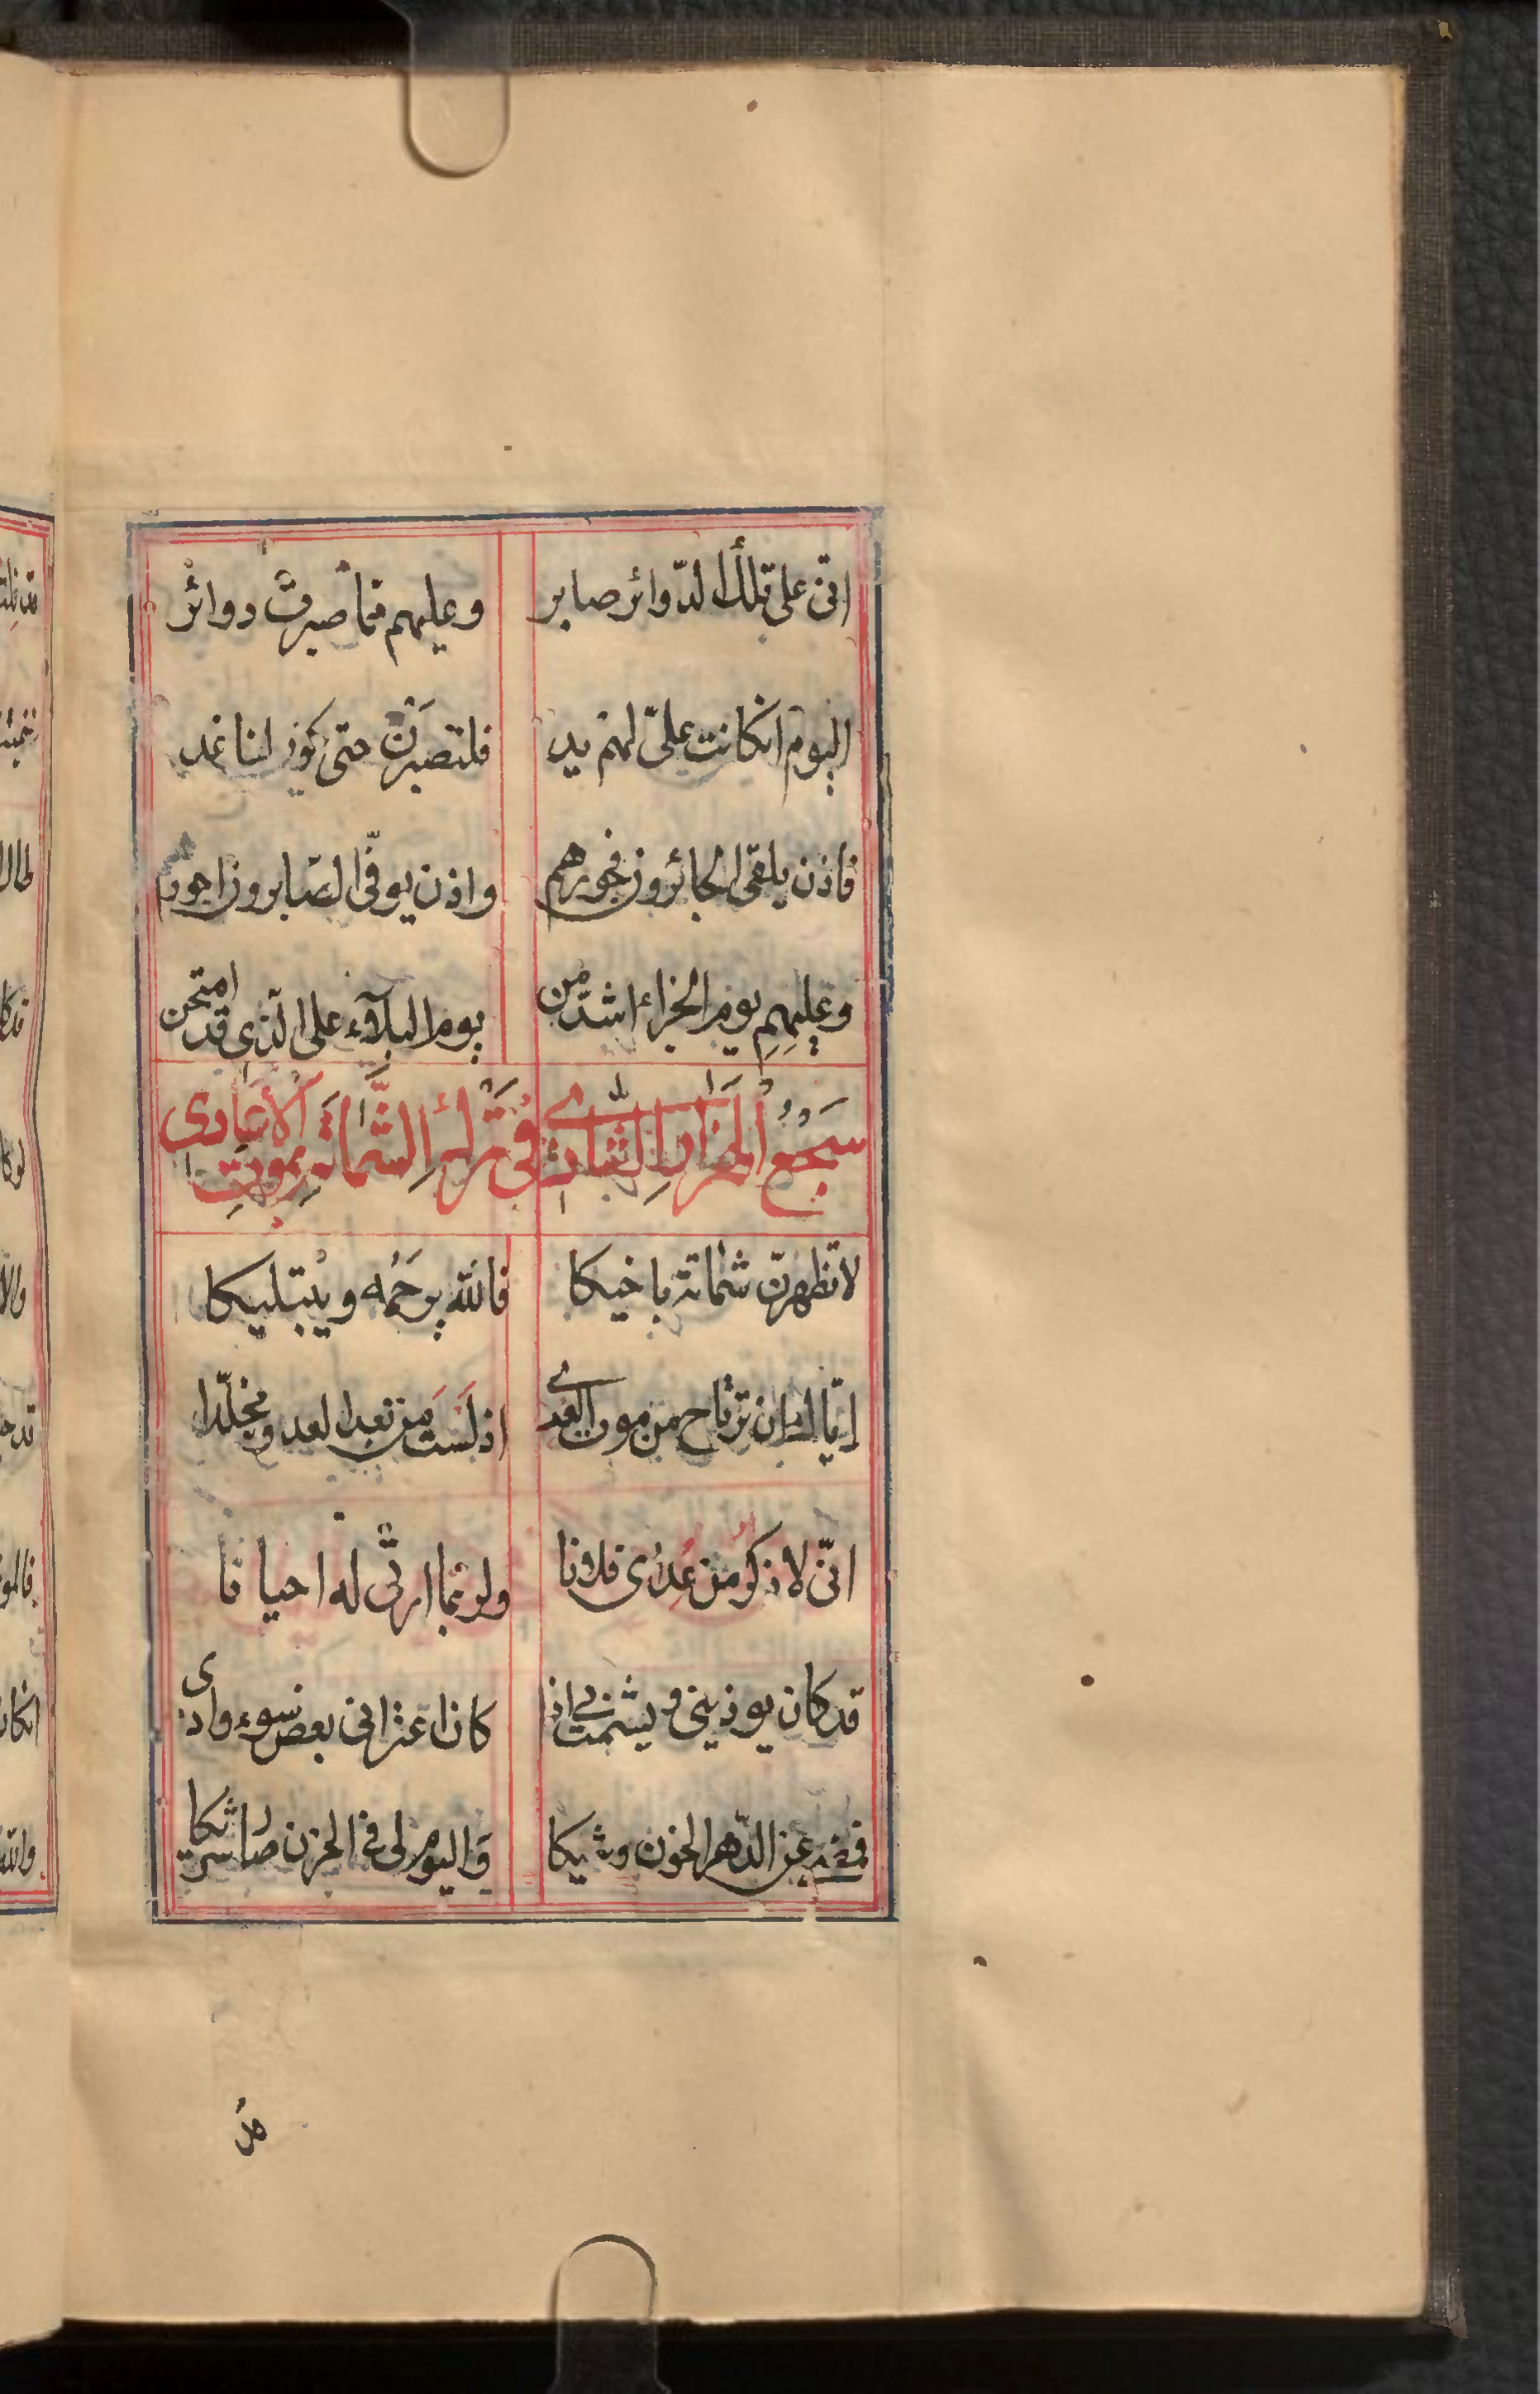 انّى على تلك الدّوائر صابر وعليهم ممّا صبرت دوائر
اليوم ان كانت علىّ لهم يد فلتصبرنّ حتى يكون لنا غد
فاذن يلقى الجائرون فجورهم واذن يوفّى الصّابرون اجورهم
وعليهم يوم الجزاء اشدّ من يوم البلاء على الذى قد امتحن
سجع الهزار الثالث فى ترك الشماتة بموت الأعادى
لا تظهرنّ شماتة باخيكا فالله يرحمه ويبتليكا
ايّاك ان ترتاح من موت العدى اذ لست من بعد العدو مخلّدا
انّى لاذكر من عداى فلانا ولربما ارثى له احيانا
قد كان يوذينى ويشمت بى اذا كان اعترانى بعض سوء واذى
فمضى عن الدّهر الخون وشيكا واليوم لى فى الحزن صار شريكا